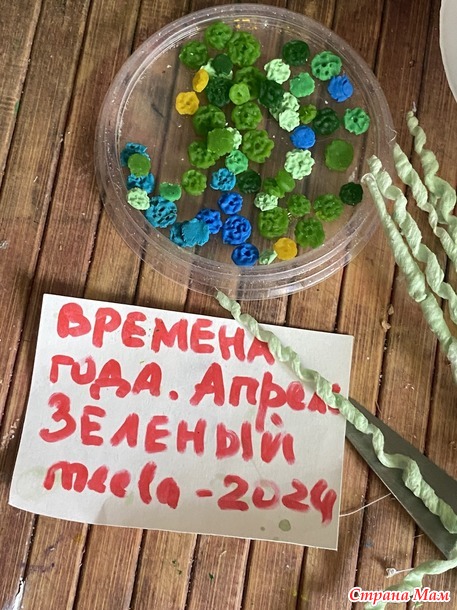 ВРЕМЕНА
года. Апрель
ЗЕЛЕНЫЙ
mecla-2024
Страна Мам